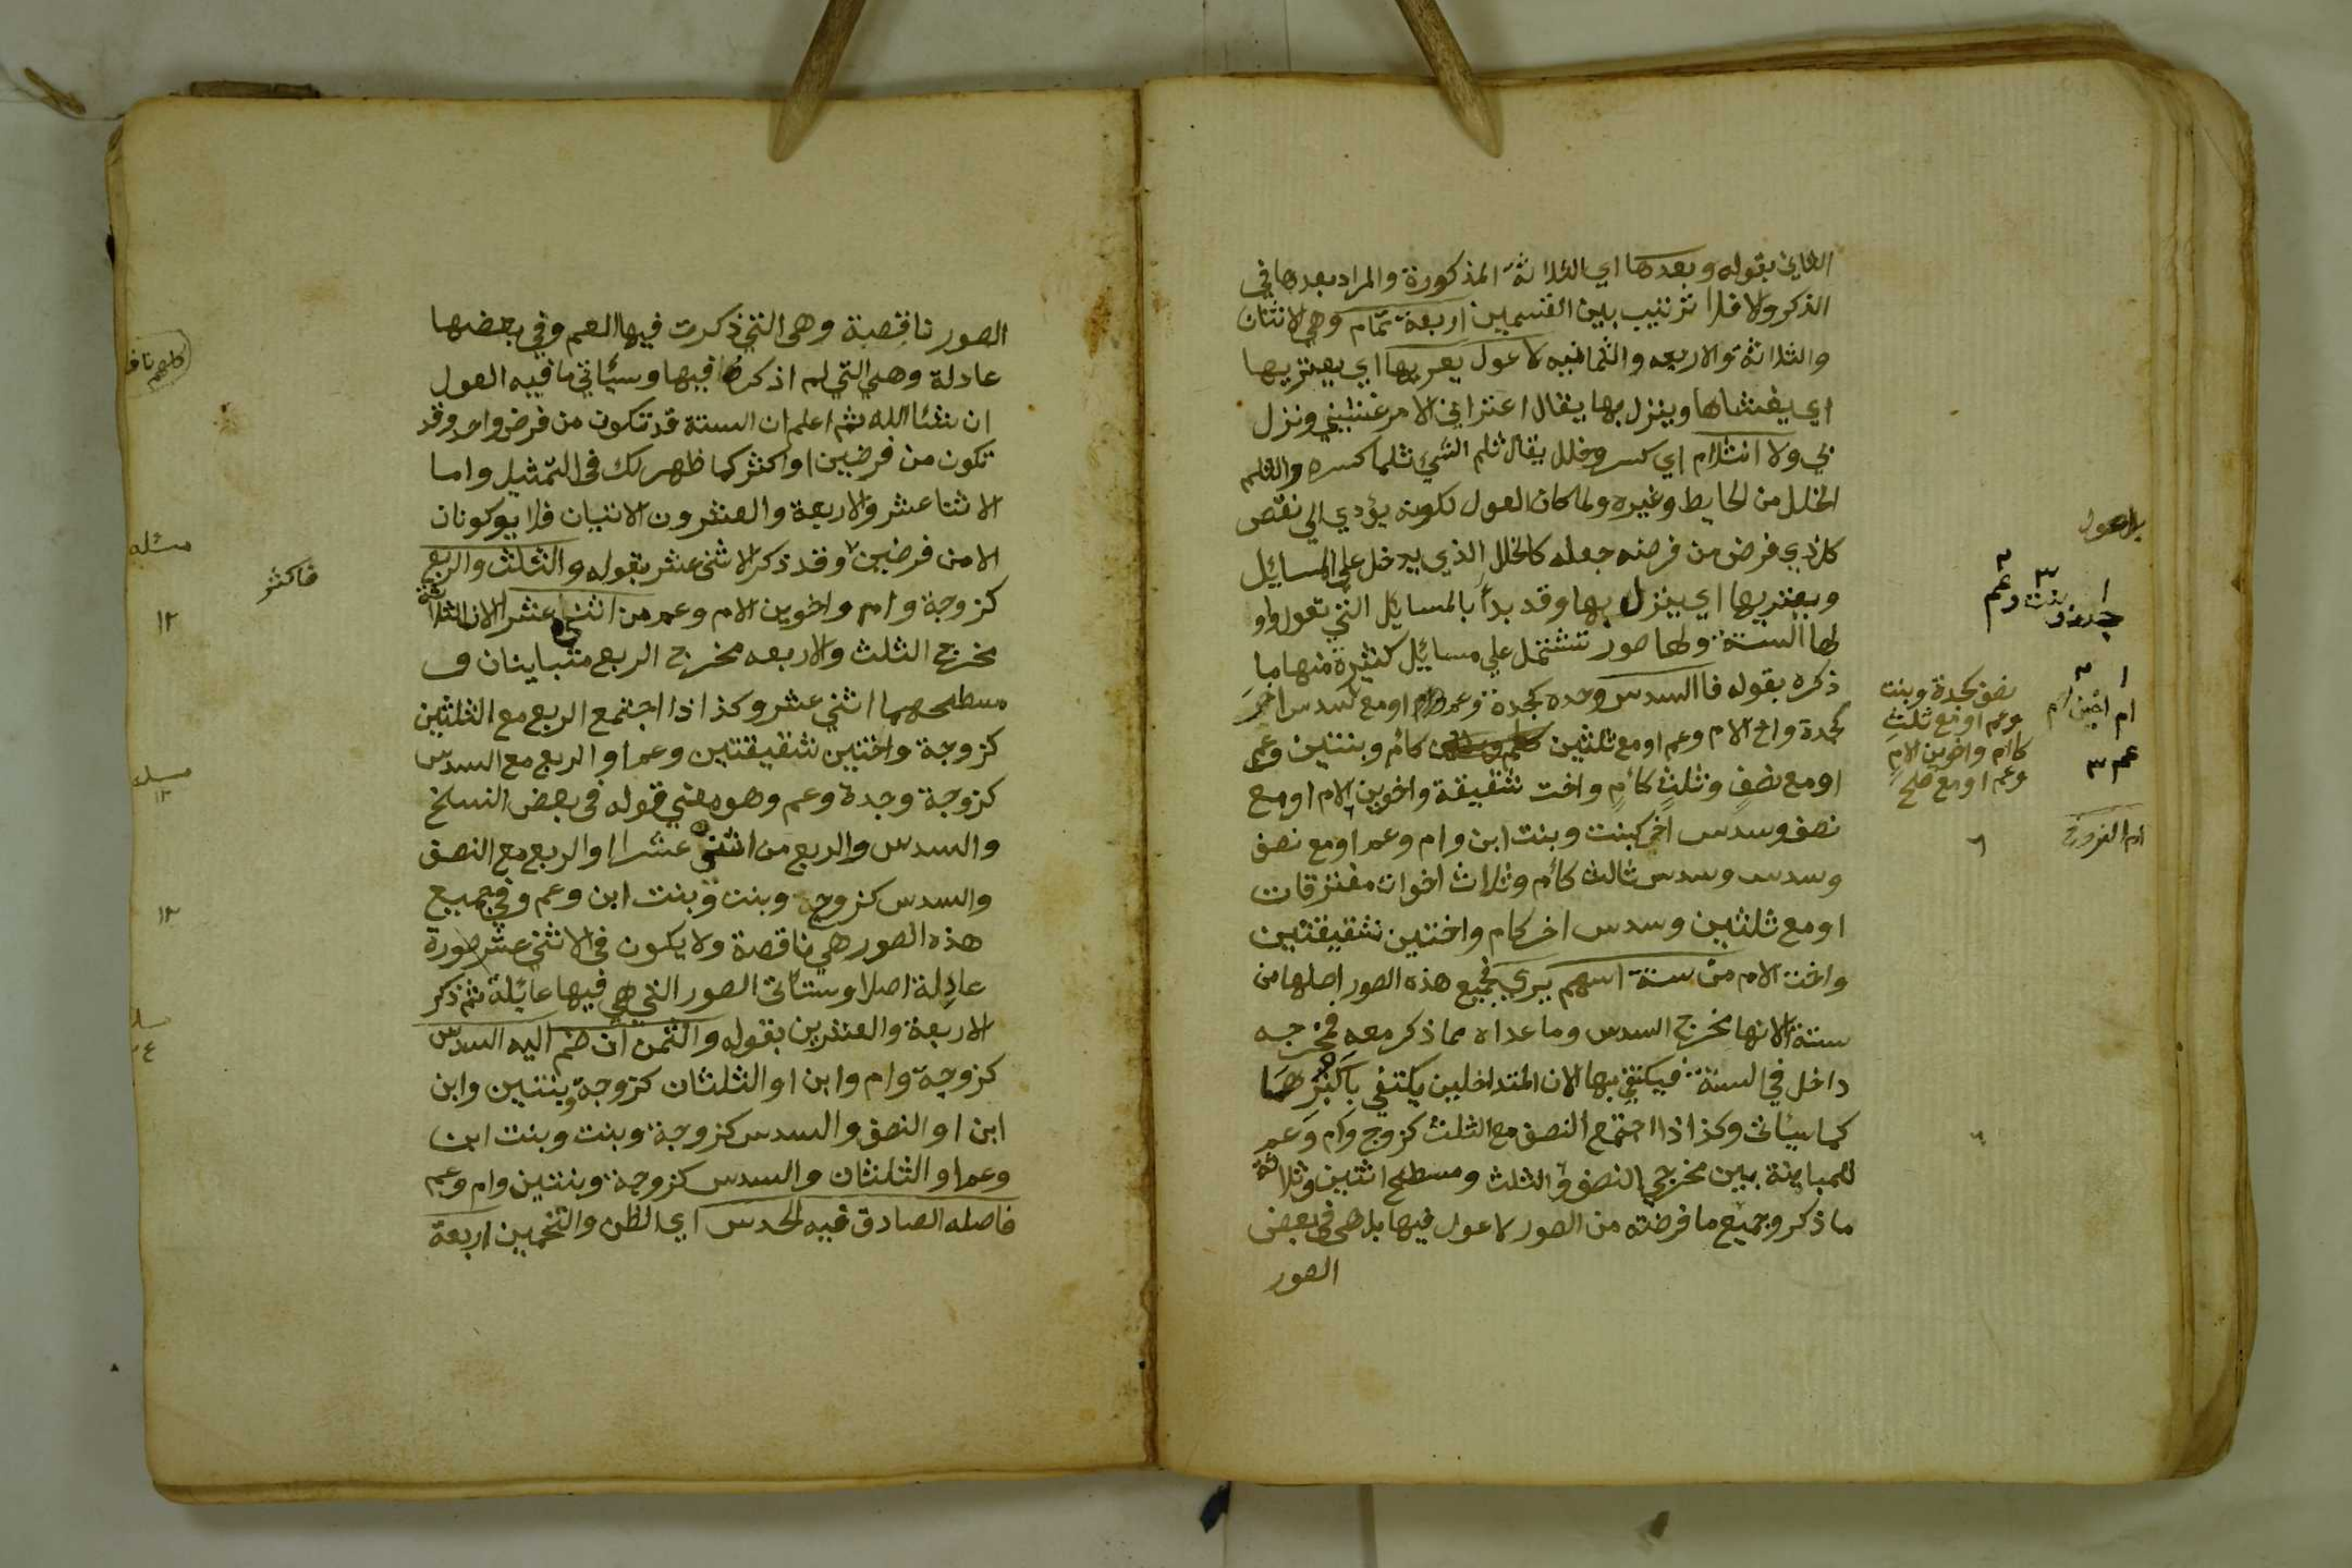 الثاني بقوله وبعدها اي الثلاثة المذكورة والمراد بعدها في
الذكر ولا فلا ترتيب بين القسمين اربعة تمام وهي الاثنان
والثلاثة والاربعه والثمانيه لا عول يعريها اي يعتريها
اي يغشاها وينزل بها يقال اعتراني الامر غشيني ونزل
بي ولا انثلام اي كسر وخلل يقال ثلم الشيء ثلما كسره والثلم
الخلل من الحايط وغيره ولما كان العول لكونه يؤدي الي نقص
كل ذي فرض من فرضه جعله كالخلل الذي يدخل علي المسائيل
ويعتريها اي ينزل بها وقد بدأ بالمسايل التي تعول واو
لها الستة ولها صور تشتمل علي مسائيل كثيرة منها ما
ذكره بقوله فاالسدس وحده كجدة وعم او مع سدس اخر
كجدة واخ الام وعم او مع ثلثين كأم وبنتين وعم
او مع نصف وثلث كأم واخت شقيقة واخوين الام او مع
نصف وسدس اخر كبنت وبنت ابن وام وعم او مع نصف
وسدس وسدس ثالث كأم وثلاث اخوات مفترقات
او مع ثلثين وسدس اخر كام واختين شقيقتين
واخت الام من ستة اسهم يري فجميع هذه الصور اصلها من
ستة الانها مخرج السدس وما عداه مما ذكر معه فمخرجه
داخل في الستة فيكتفي بها الان المتداخلين يكتفي بأكبرهما
كما سيأتي وكذا اذا اجتمع النصف مع الثلث كزوج وام وعم
للمباينة بين مخرجي النصف والثلث ومسطح اثنين وثلاثة
ما ذكر وجميع ما فرضته من الصور لا عول فيها بل هي في بعض
الصور
بلا عول
جدة وبنت وعم
نصف كجدة وبنت
وعم او مع ثلث
كاام واخوين الام
وعم او مع
ام اخين ام
عم ٣
٦
٦
الصور ناقصة وهي التي ذكرت فيها العم وفي بعضها
عادلة وهي التي لم اذكره فيها وسيأتي ما فيه العول
ان شاء الله ثم اعلم ان الستة قد تكون من فرض واحد وقد
تكون من فرضين او اكثر كما ظهر لك في التمثيل واما
الاثنا عشر والاربعة والعشرون الاتيان فلا يوكونان
الا من فرضين وقد ذكر الاثني عشر بقوله والثلث والربع
كزوجة وام واخوين الام وعم من اثني عشر الان الثلاثة
مخرج الثلث والاربعه مخرج الربع متباينان ف
مسطحهما اثني عشر وكذا اذا اجتمع الربع مع الثلثين
كزوجة واختين شقيقتين وعم او الربع مع السدس
كزوجة وجدة وعم وهو معني قوله في بعض النسخ
والسدس والربع من اثني عشرا او الربع مع النصف
والسدس كزوج وبنت وبنت ابن وعم وفي جميع
هذه الصور هي ناقصة ولا يكون في الاثني عشر صورة
عادلة اصلا وستأتي الصور التي هي فيها عائلة ثم ذكر
الاربعة والعشرين بقوله والثمن ان ضم اليه السدس
كزوجة وام وابن او الثلثان كزوجة وبنتين وابن
ابن او النصف والسدس كزوجة وبنت وبنت ابن
وعم او الثلثان والسدس كزوجة وبنتين وام وعم
فاصله الصادق فيه الحدس اي الظن والتخمين اربعة
فاكثر
مسئله
١٢
مسئله
١٢
١٢